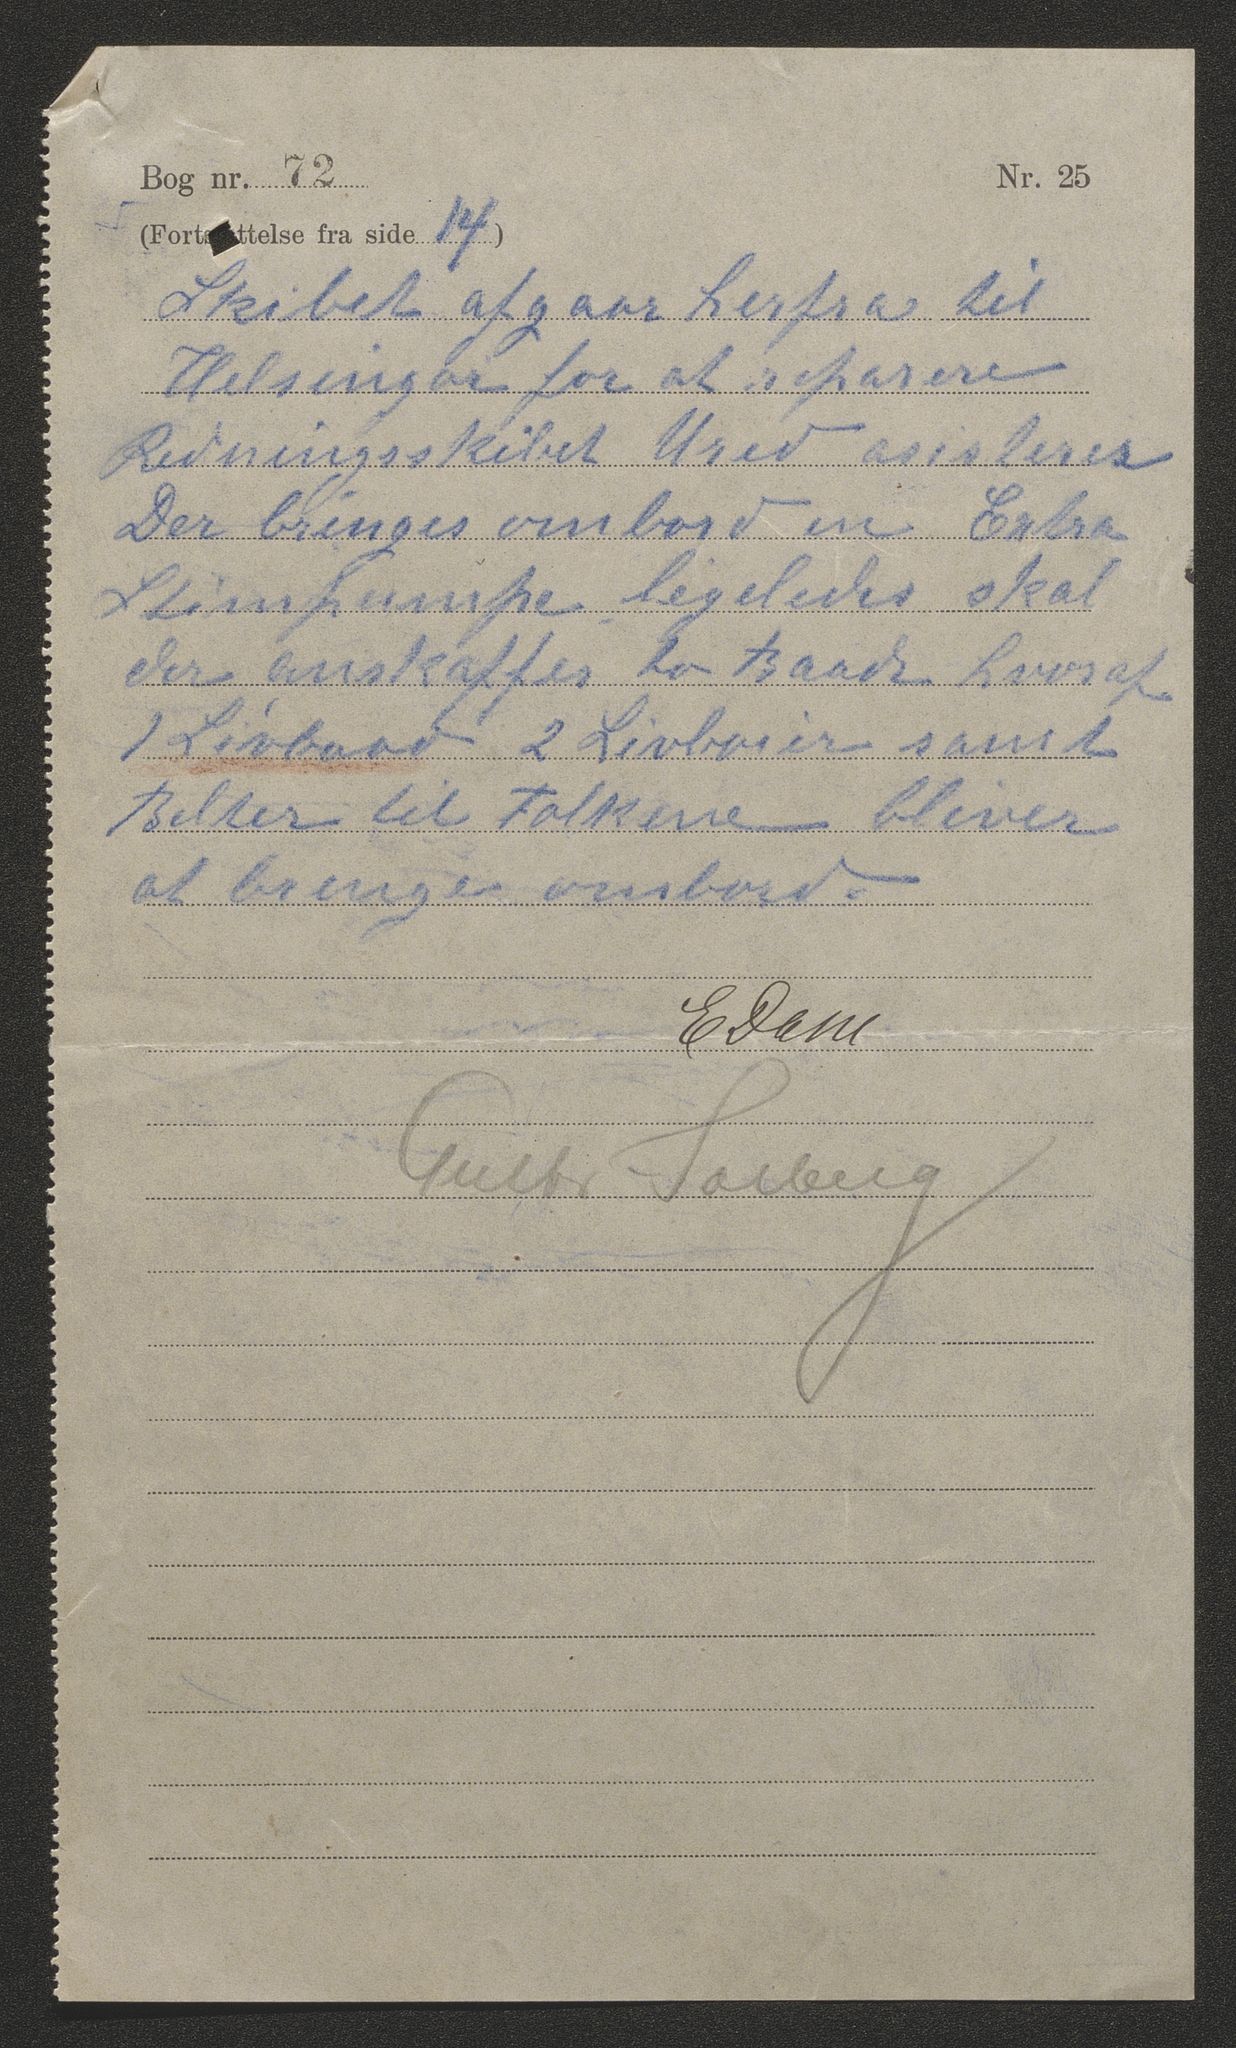 Bog nr. 72 Nr. 25
(Fortsættelse fra side 14)
Skibet afgaar herfra til
Helsingør for at reparere
Redningsskibet Ured asisterer
Der bringes ombord en Extra
Stimpumpe ligeledes skal
der anskaffes to Baade hvoraf
1 Livbaad 2 Livboier samt
Belter til Folkene bliver
at bringe ombord.
E Dam
Solberg